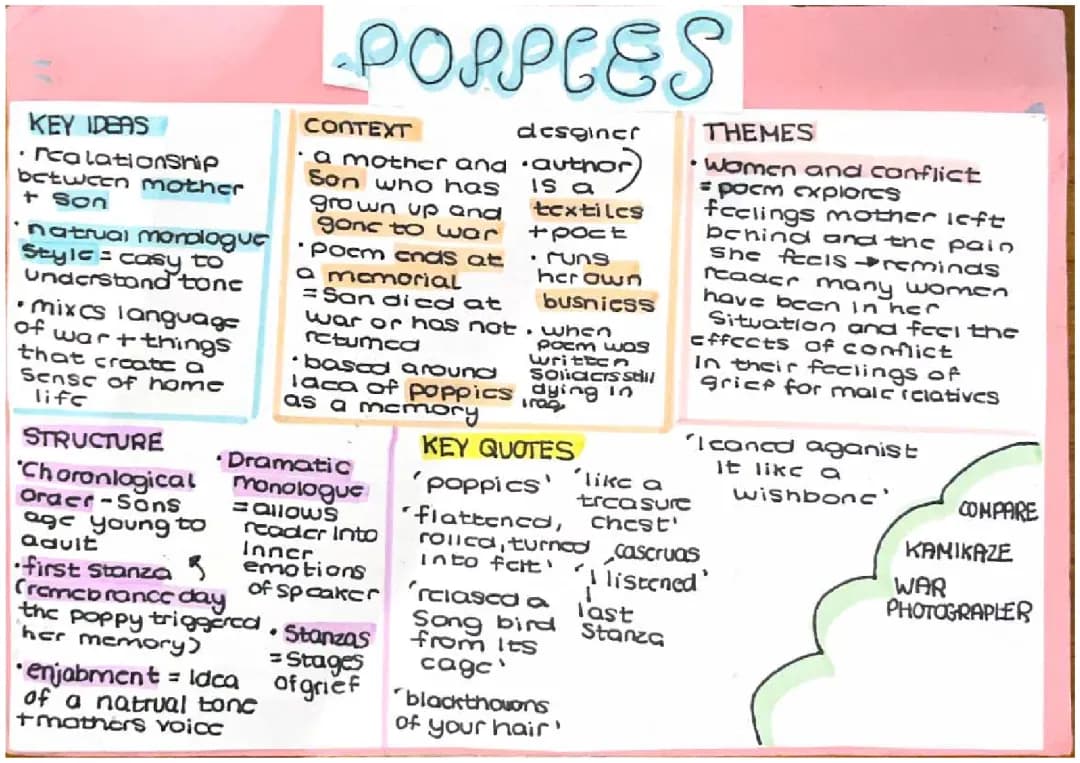 POPPIES
KEY IDEAS
· realationship
between mother
+ son
· natrual monologue
style = easy to
understand tone
· mixes language
of war + things
that create a
sense of home
life
CONTEXT
· a mother and
son who has
grown up and
gone to war
· poem ends at
a memorial
= San died at
war or has not
returned
· based around
idea of poppies
as a memory
desginer
· author)
is a
textiles
+ poet
· runs
her own
busniess
· when
poem was
written
soliders still
dying in
Iraq
THEMES
· women and conflict
= poem explores
feelings mother left
behind and the pain
she feels → reminds
reader many women
have been in her
situation and feel the
effects of conflict
in their feelings of
grief for male relatives
STRUCTURE
· Choronlogical
order - Sons
age young to
adult
· first stanza
(remebrance day
the poppy triggered
her memory)
· enjabment = idea
of a natrual tone
+ mothers voice
· Dramatic
monologue
= allows
reader into
inner
emotions
of speaker
· Stanzas
= stages
of grief
KEY QUOTES
'poppies'
'flattened,
rolled, turned
into felt'
'relased a
song bird
from its
cage'
'blackthowns
of your hair'
'like a
treasure
chest'
caseruas
'I listened'
last
stanza
'leaned aganist
it like a
wishbone'
COMPARE
KAMIKAZE
WAR
PHOTOGRAPLER